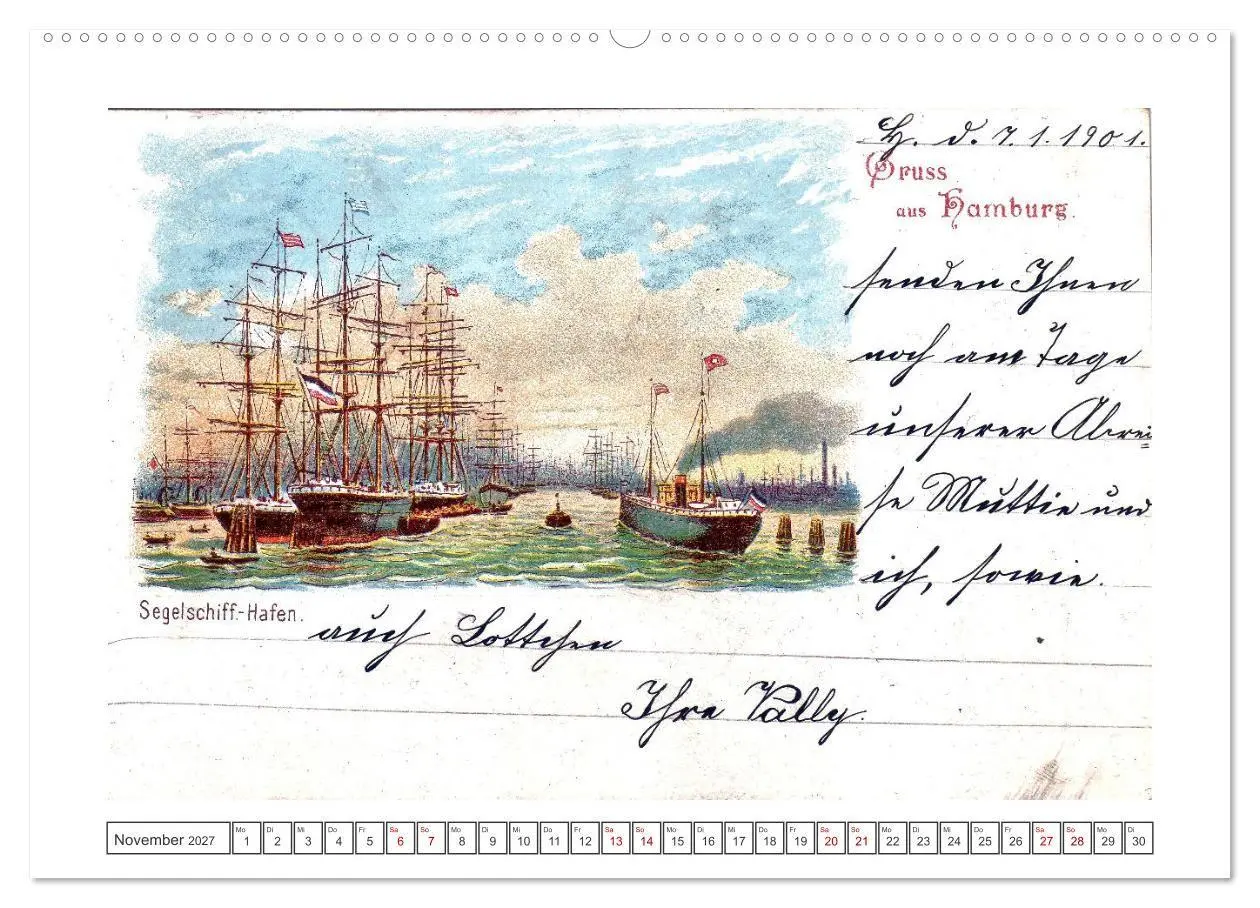 H. d. 7.1.1901.
Gruss
aus Hamburg.
senden Ihnen
noch am Tage
unserer Abrei=
se Muttie und
ich, sowie
Segelschiff-Hafen.
auch Lottchen
Ihre Vally.
November 2027 Mo 1 Di 2 Mi 3 Do 4 Fr 5 Sa 6 So 7 Mo 8 Di 9 Mi 10 Do 11 Fr 12 Sa 13 So 14 Mo 15 Di 16 Mi 17 Do 18 Fr 19 Sa 20 So 21 Mo 22 Di 23 Mi 24 Do 25 Fr 26 Sa 27 So 28 Mo 29 Di 30